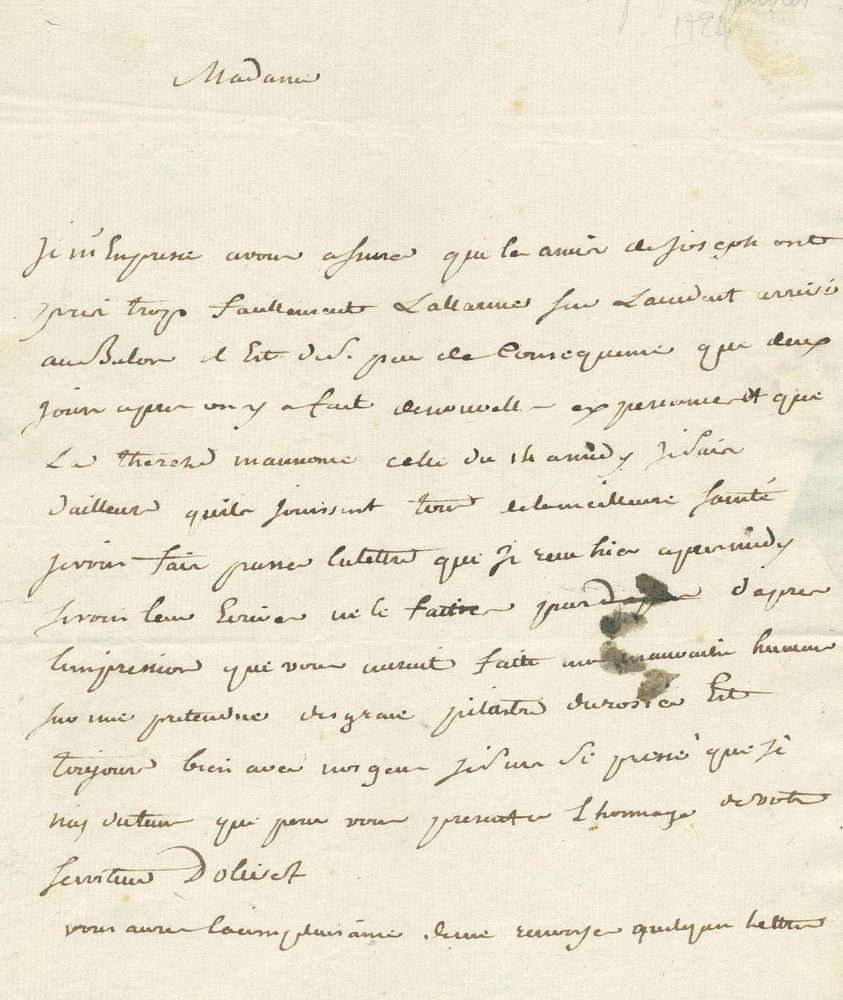 1784
Madame
Je m'Empresse avous assurer que les amis de Joseph ont
pris trop faussement Lallarme sur Laccident arrivé
au Balon il Est de si peu de Consequence que deux
jours apres on y a fait denouvelles experiences et que
La therese mannonce celle du 14 amidy je sais
dailleurs quils jouissent tous delameilleure santé
je vous fais passer lalettre que je recu hier apresmidy
si vous leur Ecrivez ne le faites pas d'apres
limpression que vous auroit faitte une mauvaise humeur
sur une pretendue disgrace pilastre durosier Est
toujours bien avec nos gens je suis si pressé que je
nay dutems que pour vous presenter Lhommage de votre
serviteur Dolliset
vous aurez lacomplaisance deme renvoyer quelques lettres